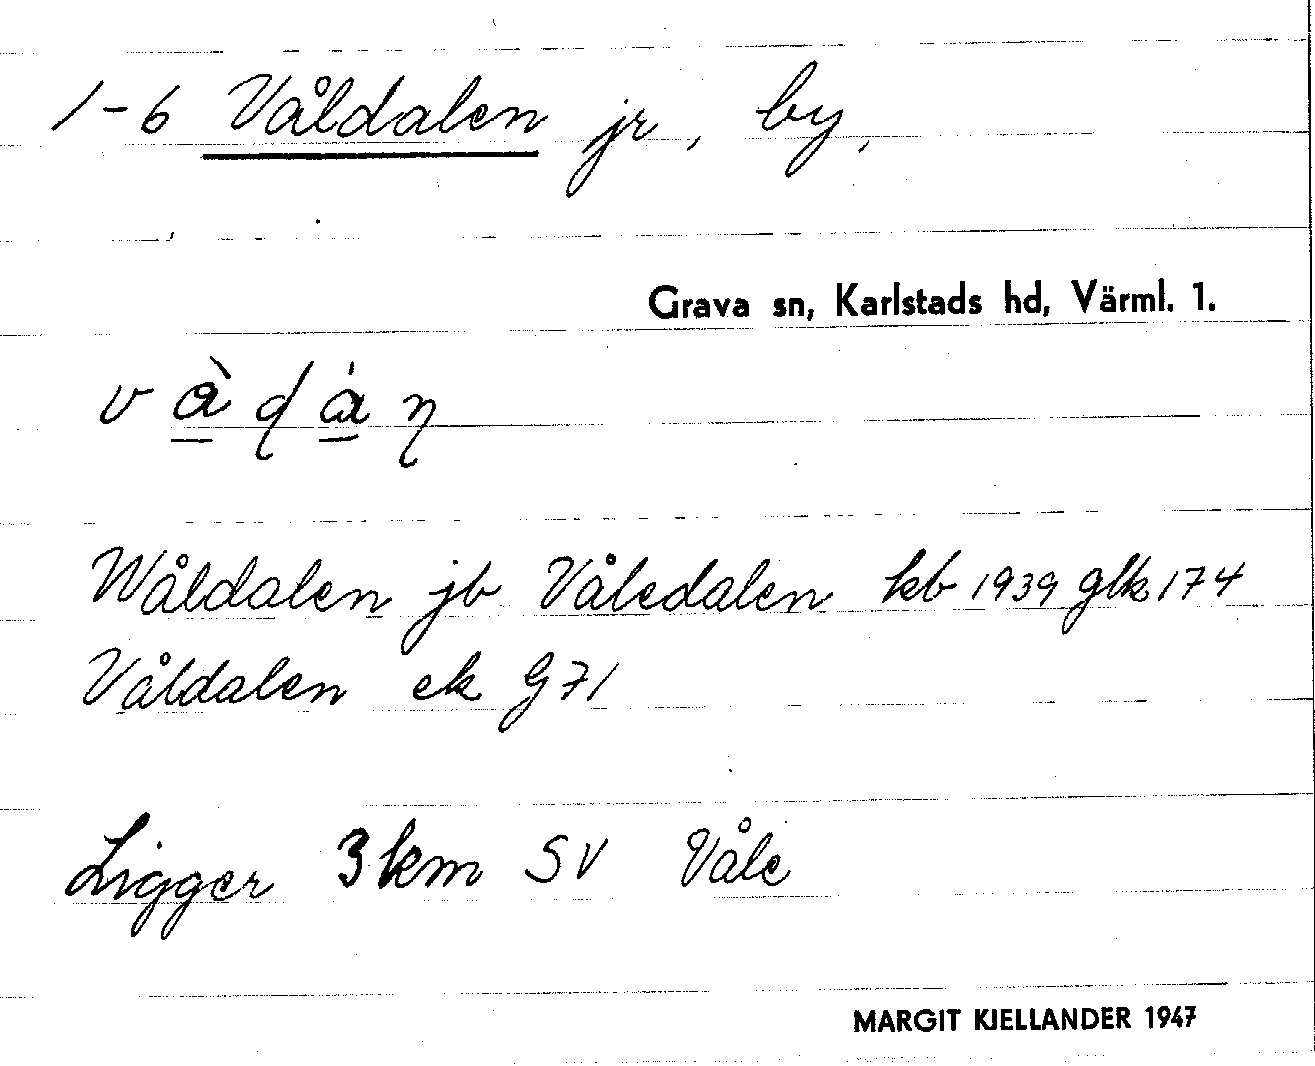 1-6 Våldalen jr, by,
Grava sn, Karlstads hd, Värml. 1.
Wåldalen jb Våledalen kb 1939 glk 174
Våldalen ek G71
Ligger 3 km SV Våle
MARGIT KJELLANDER 1947